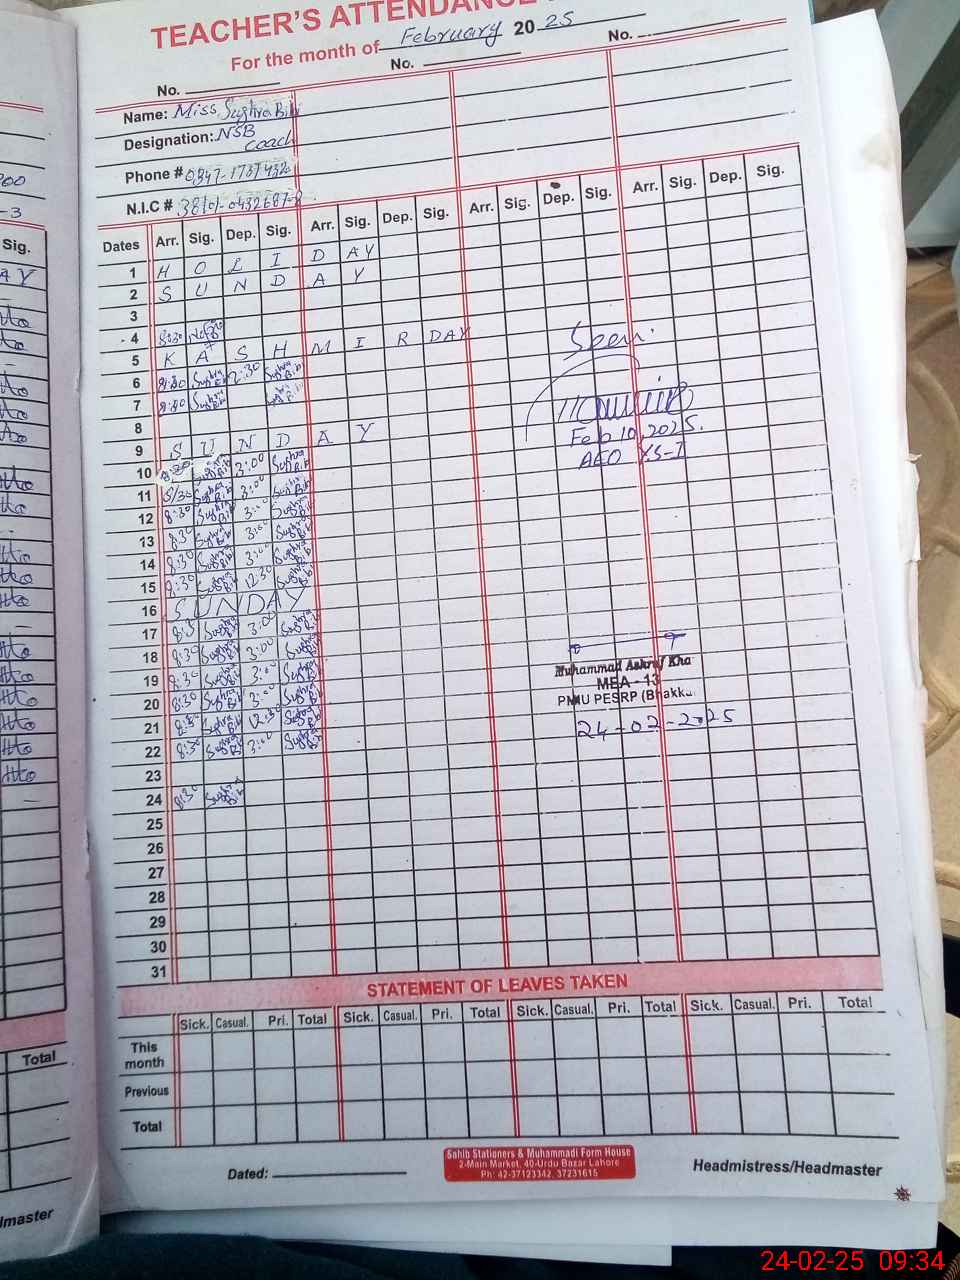 TEACHER'S ATTENDANCE
For the month of February 2025
No. No. No.
Name: Miss Sughra Bibi
Designation: NSB
coach
Phone # 0347-1737432
N.I.C #
Dates Arr. Sig. Dep. Sig. Arr. Sig. Dep. Sig. Arr. Sig. Dep. Sig. Arr. Sig. Dep. Sig.
1 HOLIDAY
2 SUNDAY
3
4 8:30
5 KASHMIR DAY
6 8:30 Sughra Bibi 2:30 Sughra Bibi
7 8:30 Sughra Bibi Sughra Bibi
8
9 SUNDAY
10 8:30 Sughra Bibi 3:00 Sughra Bibi
11 8:30 Sughra Bibi 3:00 Sughra Bibi
12 8:30 Sughra Bibi 3:00 Sughra Bibi
13 8:30 Sughra Bibi 3:00 Sughra Bibi
14 8:30 Sughra Bibi 3:00 Sughra Bibi
15 8:30 Sughra Bibi 12:30 Sughra Bibi
16 SUNDAY
17 8:30 Sughra Bibi 3:00 Sughra Bibi
18 8:30 Sughra Bibi 3:00 Sughra Bibi
19 8:30 Sughra Bibi 3:00 Sughra Bibi
20 8:30 Sughra Bibi 3:00 Sughra Bibi
21 8:30 Sughra Bibi 12:30 Sughra Bibi
22 8:30 Sughra Bibi 3:00 Sughra Bibi
23
24 8:30 Sughra Bibi
25
26
27
28
29
30
31
Seen
Feb 10, 2025.
AEO
Muhammad Ashraf Kha
MEA - 13
PMIU PESRP (Bhakka
24-02-2025
STATEMENT OF LEAVES TAKEN
Sick. Casual. Pri. Total Sick. Casual. Pri. Total Sick. Casual. Pri. Total Sick. Casual. Pri. Total
This month
Previous
Total
Dated:
Sahib Stationers & Muhammadi Form House
2-Main Market, 40-Urdu Bazar Lahore
Ph: 42-37123342, 37231615
Headmistress/Headmaster
Sig.
Total
dmaster
24-02-25 09:34